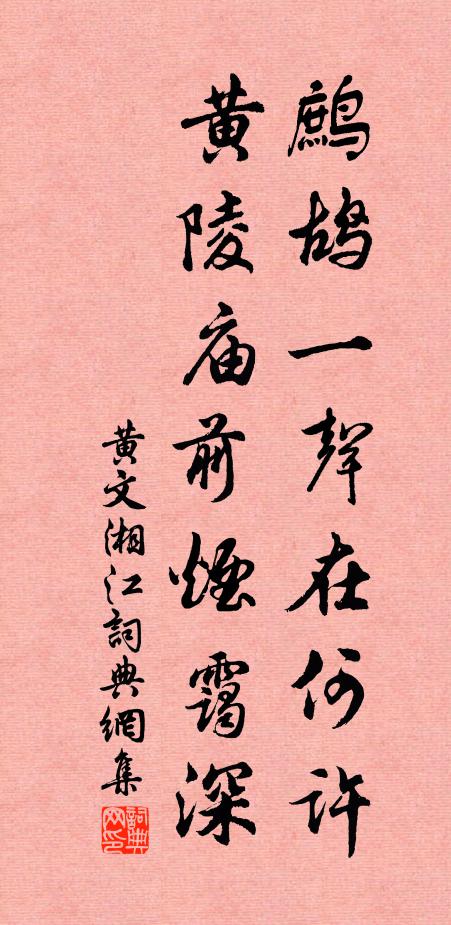 鷓鴣一聲在何許
黃陵庙前煙靄深
黃文湘江詞典網集
詞典
网印